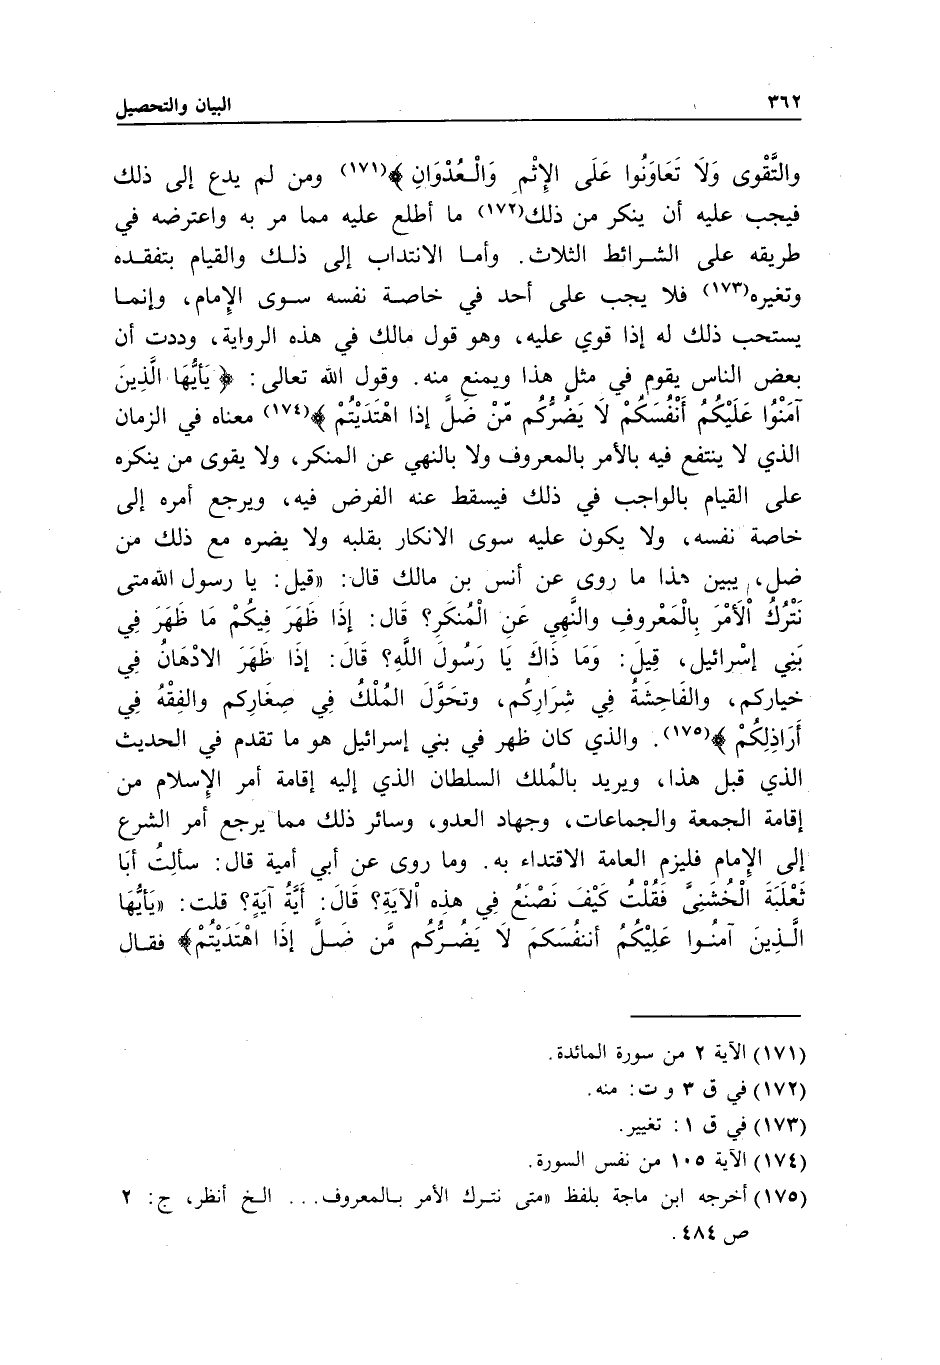 ٣٦٢ البيان والتحصيل
والتَّقْوى وَلَا تَعَاوَنُوا عَلَى الإِثْمِ وَالْعُدْوَانِ﴾(١٧١) ومن لم يدع إلى ذلك
فيجب عليه أن ينكر من ذلك(١٧٢) ما أطلع عليه مما مر به واعترضه في
طريقه على الشرائط الثلاث. وأما الانتداب إلى ذلك والقيام بتفقده
وتغيره(١٧٣) فلا يجب على أحد في خاصة نفسه سوى الإمام، وإنما
يستحب ذلك له إذا قوي عليه، وهو قول مالك في هذه الرواية، وددت أن
بعض الناس يقوم في مثل هذا ويمنع منه. وقول الله تعالى: ﴿يَأَيُّهَا الَّذِينَ
آمَنُوا عَلَيْكُمُ أَنْفُسَكُمْ لَا يَضُرُّكُم مّنْ ضَلَّ إذا اهْتَدَيْتُمْ﴾(١٧٤) معناه في الزمان
الذي لا ينتفع فيه بالأمر بالمعروف ولا بالنهي عن المنكر، ولا يقوى من ينكره
على القيام بالواجب في ذلك فيسقط عنه الفرض فيه، ويرجع أمره إلى
خاصة نفسه، ولا يكون عليه سوى الانكار بقلبه ولا يضره مع ذلك من
ضل، يبين هذا ما روى عن أنس بن مالك قال: «قيل: يا رسول الله متى
نَتْرُكُ الْأَمْرَ بِالْمَعْروفِ والنَّهِي عَنِ الْمُنكَرِ؟ قَالَ: إذَا ظَهَرَ فِيكُمْ مَا ظَهَرَ فِي
بَنِي إسْرائيل، قِيلَ: وَمَا ذَاكَ يَا رَسُولَ اللَّهِ؟ قَالَ: إذَا ظَهَرَ الادْهَانُ فِي
خياركم، والفَاحِشَةُ فِي شِرَارِكُم، وتحَوَّلَ المُلْكُ فِي صِغَارِكم والفِقْهُ فِي
أَرَاذِلِكُمْ﴾(١٧٥). والذي كان ظهر في بني إسرائيل هو ما تقدم في الحديث
الذي قبل هذا، ويريد بالمُلك السلطان الذي إليه إقامة أمر الإسلام من
إقامة الجمعة والجماعات، وجهاد العدو، وسائر ذلك مما يرجع أمر الشرع
إلى الإمام فليزم العامة الاقتداء به. وما روى عن أبي أمية قال: سألتُ أبَا
ثَعْلَبَةَ الْخُشَنِيَّ فَقُلْتُ كَيْفَ نَصْنَعُ فِي هذِه الْآيَةِ؟ قَالَ: أَيَّةُ آيَةٍ؟ قلت: «يَأيُّهَا
الَّذِينَ آمنُوا عَلَيْكُمُ أننفُسَكمَ لَا يَضُرُّكُم مَّن ضَلَّ إذَا اهْتَدَيْتُمْ﴾ فقال
(١٧١) الآية ٢ من سورة المائدة.
(١٧٢) في ق ٣ و ت: منه.
(١٧٣) في ق ١: تغيير.
(١٧٤) الآية ١٠٥ من نفس السورة.
(١٧٥) أخرجه ابن ماجة بلفظ «متى نترك الأمر بالمعروف... الخ أنظر، ج: ٢
ص ٤٨٤.